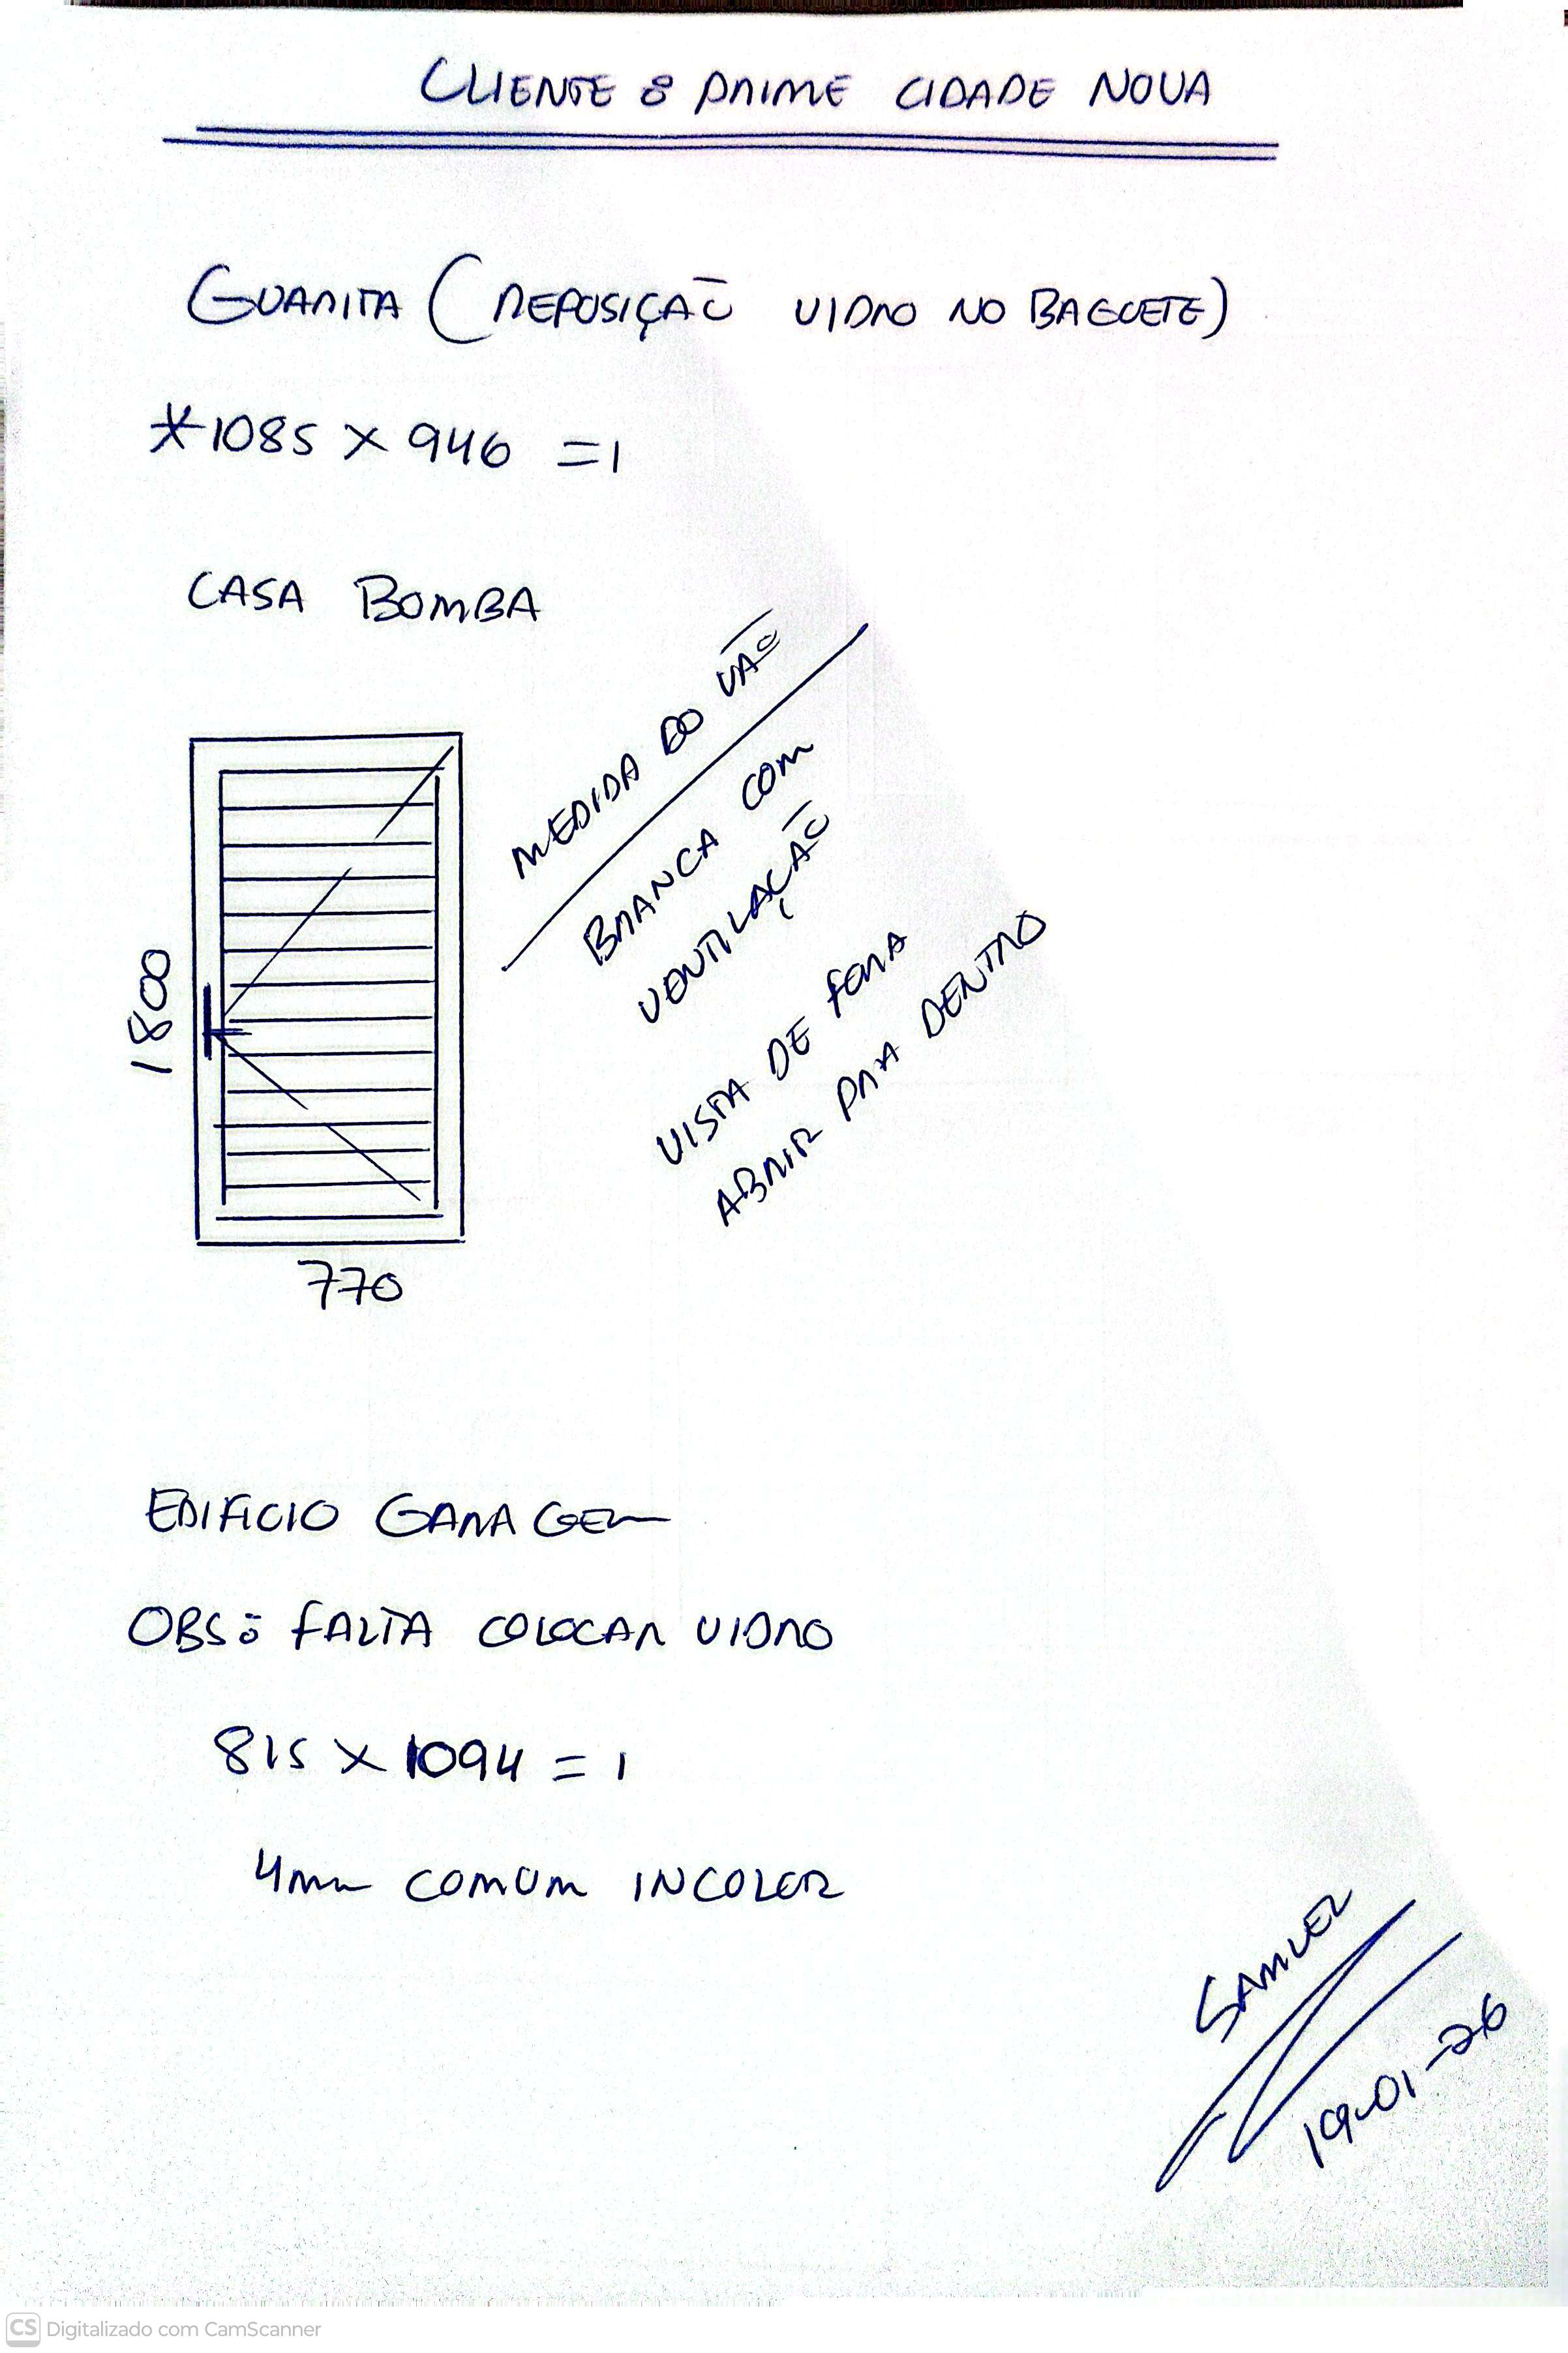 CLIENTE: PRIME CIDADE NOVA
GUARITA (REPOSIÇÃO VIDRO NO BAGUETE)
*1085 X 946 = 1
CASA BOMBA
MEDIDA DO VÃO
BRANCA COM
VENTILAÇÃO
VISTA DE FORA
ABRIR PARA DENTRO
1800
770
EDIFICIO GARAGEM
OBS: FALTA COLOCAR VIDRO
815 X 1094 = 1
4mm COMUM INCOLOR
SAMUEL
19-01-26
CS Digitalizado com CamScanner